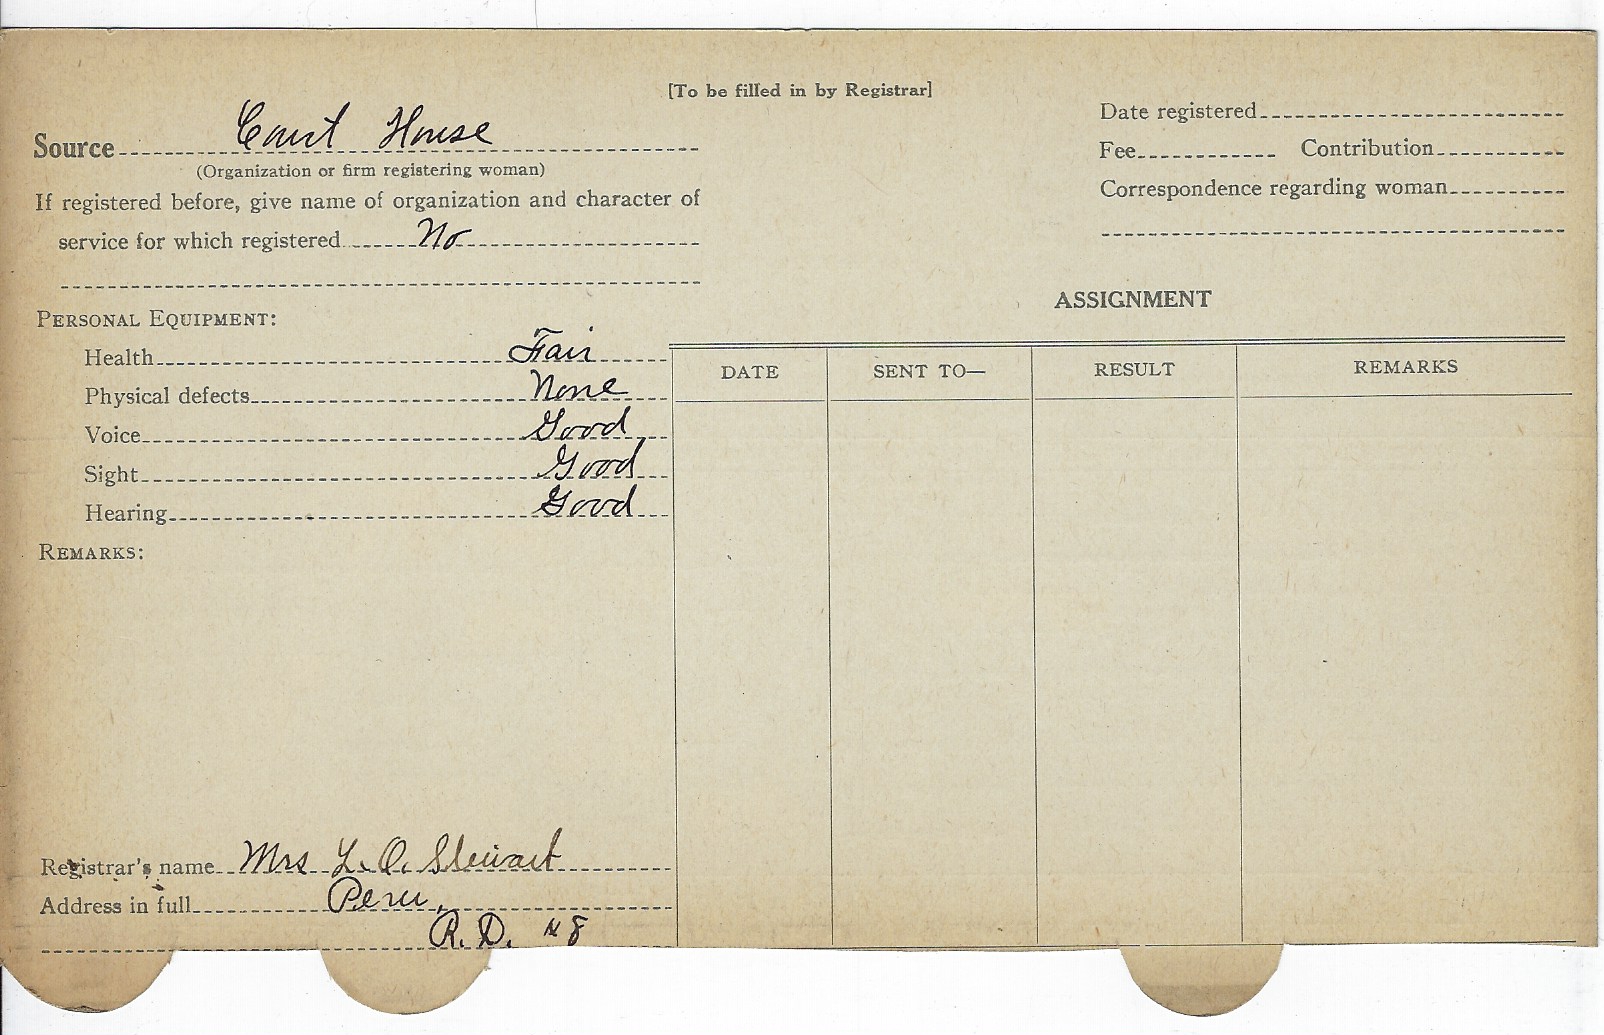 [To be filled in by Registrar]
Source Court House
(Organization or firm registering woman)
If registered before, give name of organization and character of
service for which registered No
Date registered
Fee Contribution
Correspondence regarding woman
PERSONAL EQUIPMENT:
Health Fair
Physical defects None
Voice Good
Sight Good
Hearing Good
REMARKS:
ASSIGNMENT
DATE SENT TO— RESULT REMARKS
Registrar's name Mrs L. O. Stewart
Address in full Peru,
R. D. #8